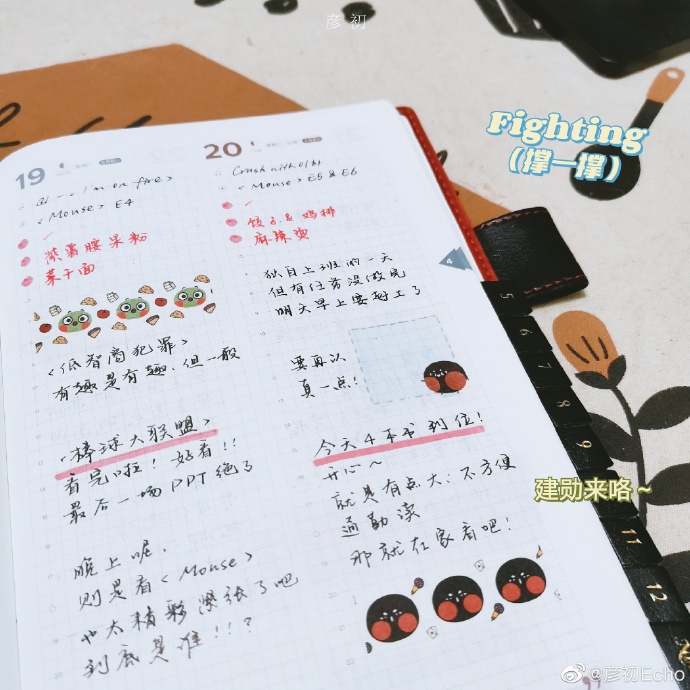 彦初
Fighting
(撑一撑)
19
I'm on fire>
<Mouse> E4
紫薯腰果粉
菜干面
<低智商犯罪>
有趣是有趣，但一般
<棒球大联盟>
看完啦！好看！！
最后一场PPT绝了
晚上呢，
则是看<Mouse>
也太精彩紧张了吧
到底是谁！！？
20
Crush
<Mouse> E5 & E6
饺子 & 鸡排
麻辣烫
独自上班的一天
但有任务没做完
明天早上要赶工了
要再认
真一点！
今天4本书到位！
开心~
就是有点大：不方便
通勤读
那就在家看吧！
4
5
6
7
8
9
11
12
建勋来咯~
@彦初Echo